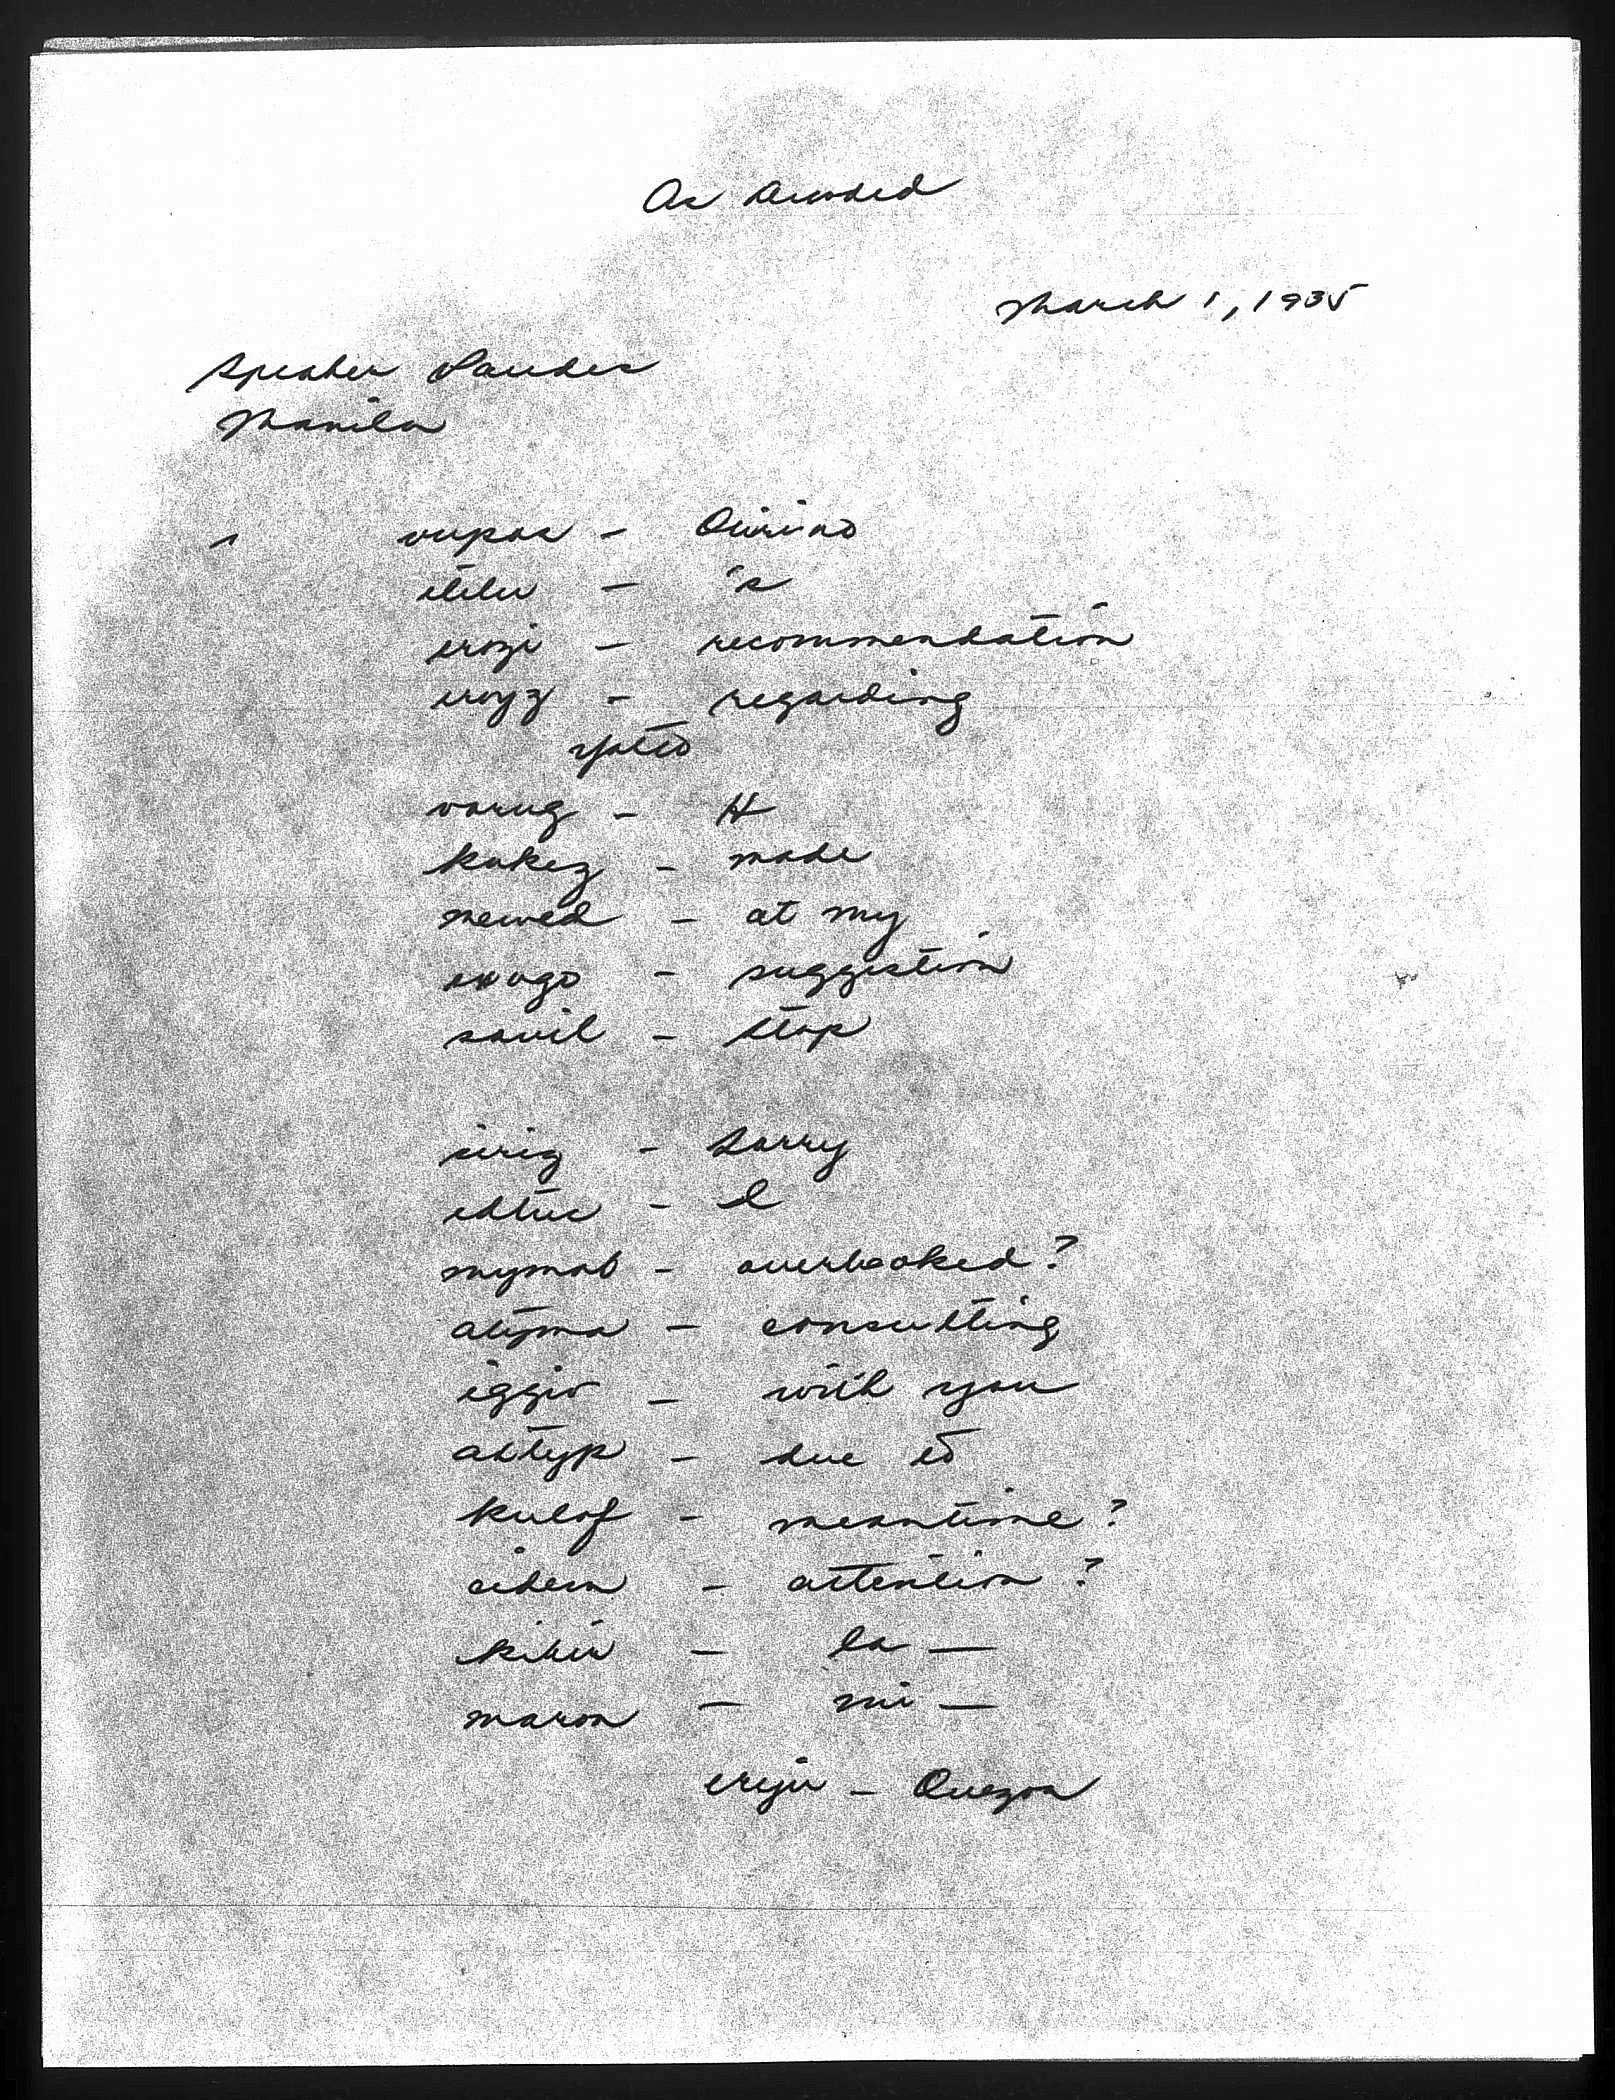 As Decoded
March 1, 1935
Speaker Paredes
Manila
vupas - Quirino
- 's
erozi - recommendation
eroyz - regarding
varug - H
kakez - made
newed - at my
exugo - suggestion
savil - stop
sirig - Sorry
- I
mymob - overlooked?
atyma - consulting
iggiv - with you
adtyp - due to
kulof - meantime?
- attention?
- la —
maron - mi —
- Quezon